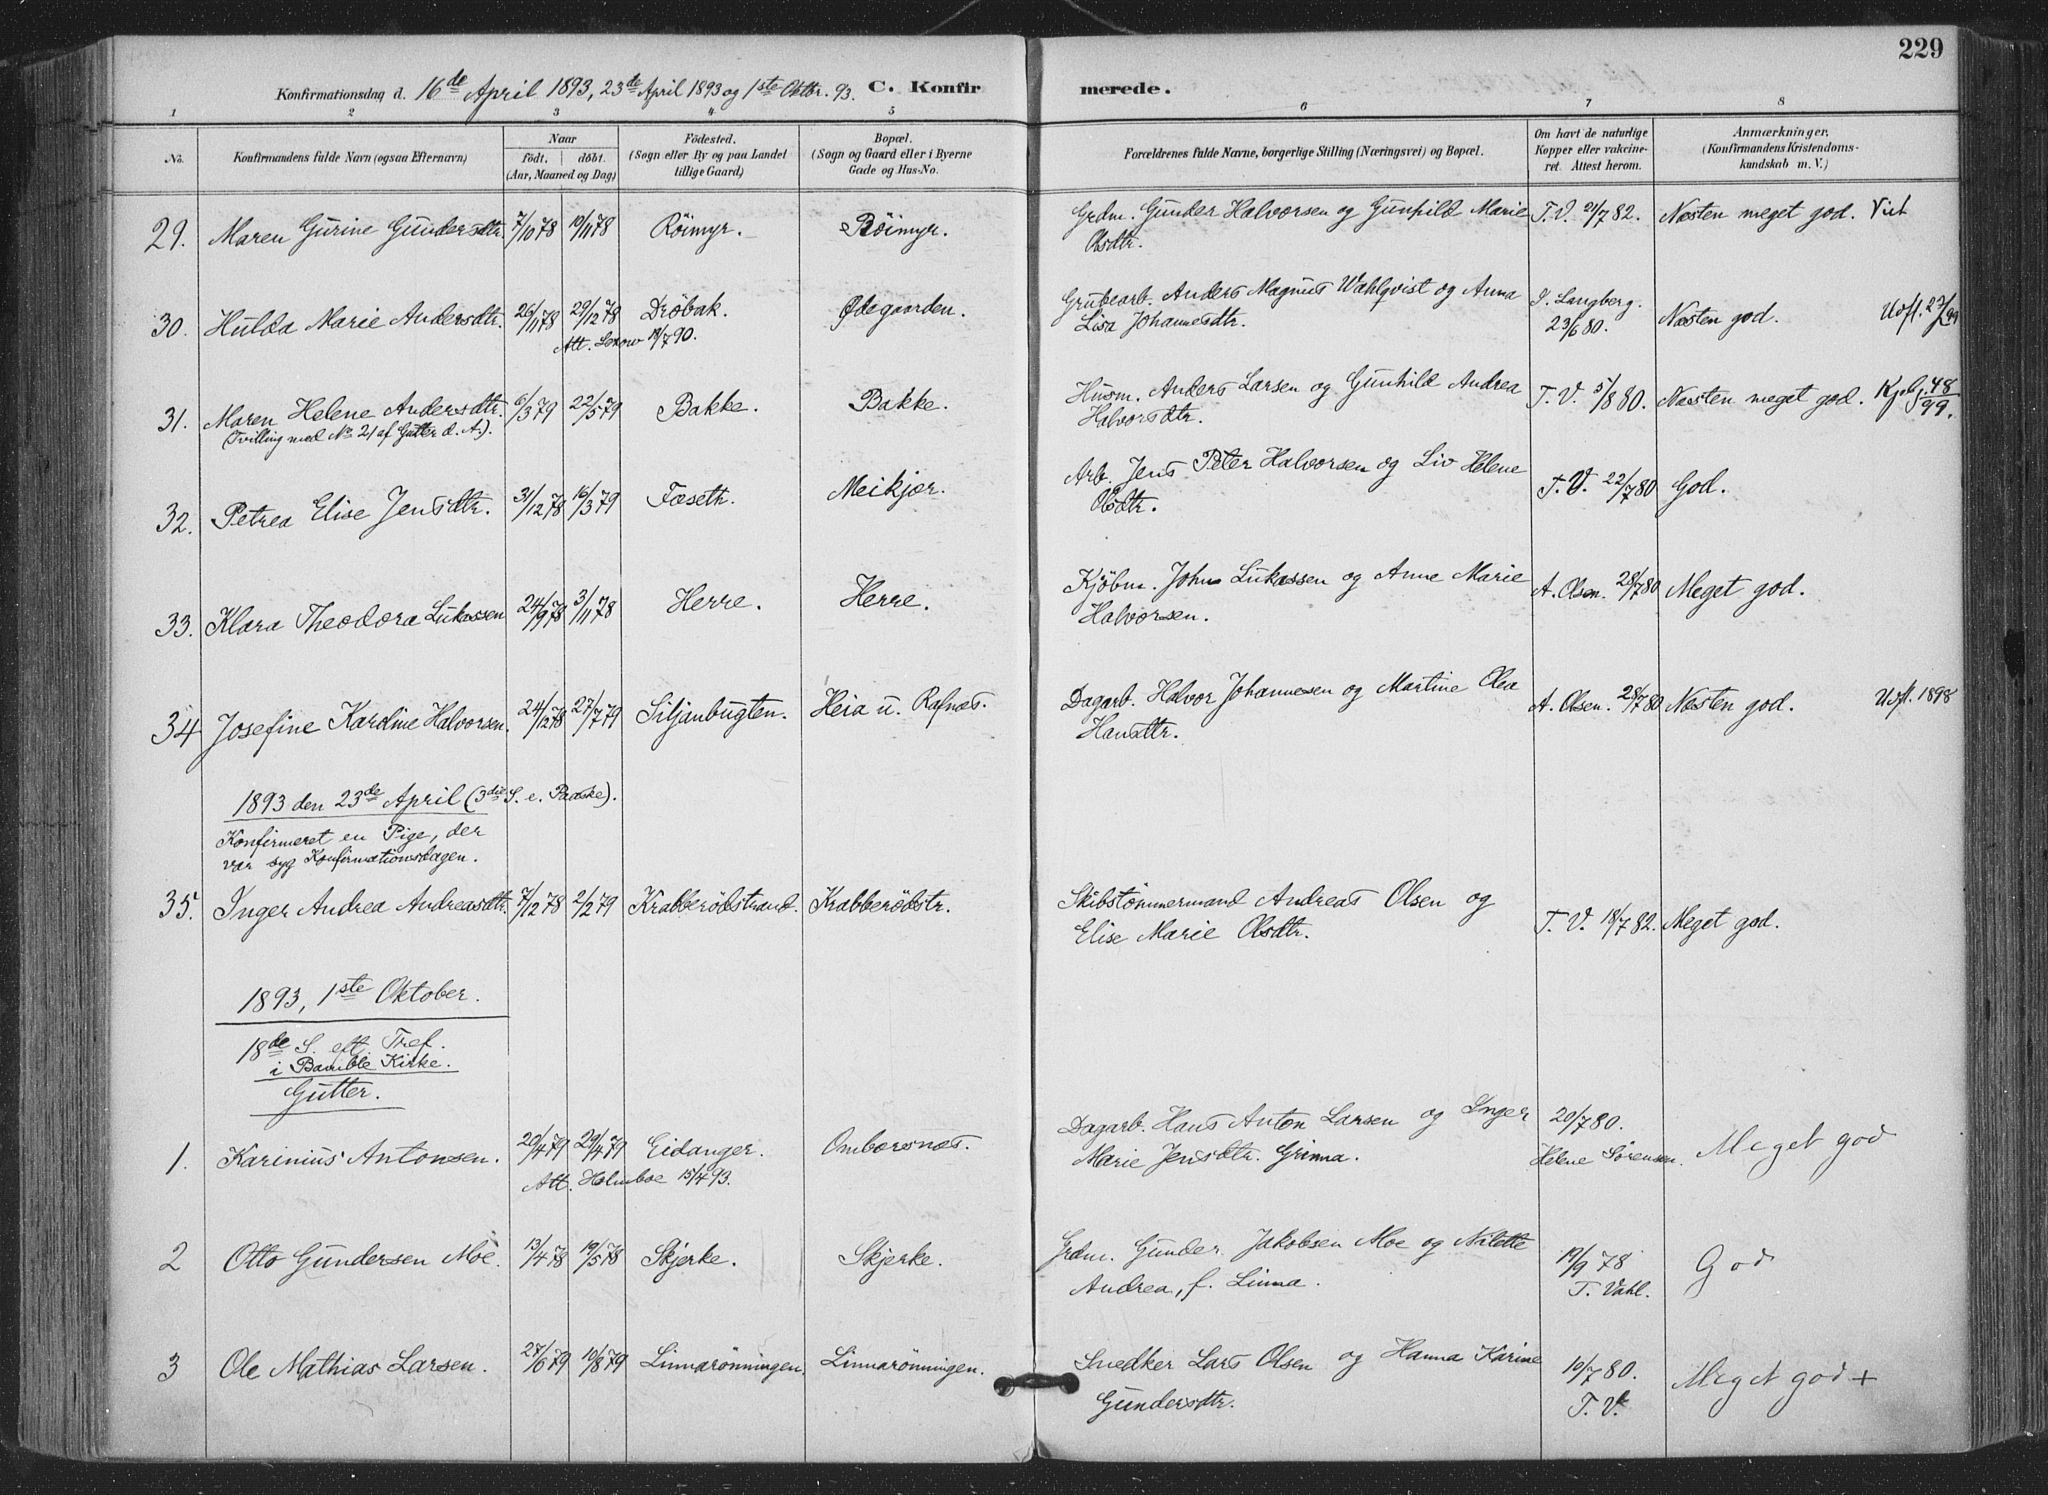 229
Konfirmationsdag d. 16de April 1893, 23de April 1893 og 1ste Oktbr. 93. C. Konfirmerede.
1 2 3 4 5 6 7 8
No. Konfirmandens fulde Navn (ogsaa Efternavn) Naar födt, döbt. (Aar, Maaned og Dag) Födested. (Sogn eller By og paa Landet tillige Gaard) Bopæl. (Sogn og Gaard eller i Byerne Gade og Hus-No. Forældrenes fulde Navne, borgerlige Stilling (Næringsvei) og Bopæl. Om havt de naturlige Kopper eller vakcineret. Attest herom. Anmærkninger. (Konfirmandens Kristendomskundskab m. V.)
29. Maren Gurine Gundersdtr. 7/10 78 10/11 78 Röimyr. Röimyr. Grdm. Gunder Halvorsen og Gunhild Marie T. V. 21/7 82. Næsten meget god.
Olsdtr.
30. Hulda Marie Andersdtr. 26/11 78 29/12 78 Dröbak. Ødegaarden. Grubearb. Anders Magnus Wahlqvist og Anna J. Langberg. Næsten god. Udfl.
Att. Lexow 19/7 90. Lisa Johannesdtr. 23/6 80.
31. Maren Helene Andersdtr. 6/3 79 22/5 79 Bakke. Bakke. Husm. Anders Larsen og Gunhild Andrea T. V. 5/8 80. Næsten meget god. 48/99.
(Tvilling med No 21 af Gutter d. A.). Halvorsdtr.
32. Petrea Elise Jensdtr. 31/12 78 16/3 79 Fæseth. Meikjær. Arb. Jens Peter Halvorsen og Liv Helene T. V. 22/7 80 God.
Olsdtr.
33. Klara Theodora Lukassen 24/9 78 3/11 78 Herre. Herre. Kjöbm. John Lukassen og Anne Marie A. Olsen. 28/7 80 Meget god.
Halvorsen.
34 Josefine Kardine Halvorsen. 24/12 78 27/7 79 Siljanbugten. Heia u. Rafnæs. Dagarb. Halvor Johannesen og Martine Olea A. Olsen. 28/7 80 Næsten god. Udfl. 1898
Hansdtr.
1893 den 23de April (3die S. e. Paaske).
Konfirmeret en Pige, der
var syg Konfirmationsdagen.
35. Inger Andrea Andreasdtr. 7/12 78 2/2 79 Krabberödstrand. Krabberödstr. Skibstömmermand Andreas Olsen og T. V. 18/7 82. Meget god.
Elise Marie Olsdtr.
1893, 1ste Oktober.
18de S. eft. Tref.
i Bamble Kirke.
Gutter.
1. Karinius Antonsen. 20/4 79 29/4 79 Eidanger. Ombæresnæs. Dagarb. Hans Anton Larsen og Inger 20/7 80. Meget god
Att. Holmboe 15/4 93. Marie Jensdtr. Grinna. Helene Sörensen.
2 Otto Gundersen Moe. 13/4 78 19/5 78 Skjerke. Skjerke. Grdm. Gunder Jakobsen Moe og Nilette 19/9 78 God
Andrea, f. Linna. T. Vahl.
3 Ole Mathias Larsen. 27/6 79 10/8 79 Linnarönningen. Linnarönningen. Snedker Lars Olsen og Hanna Karine 10/7 80. Meget god +
Gundersdtr. T. V.